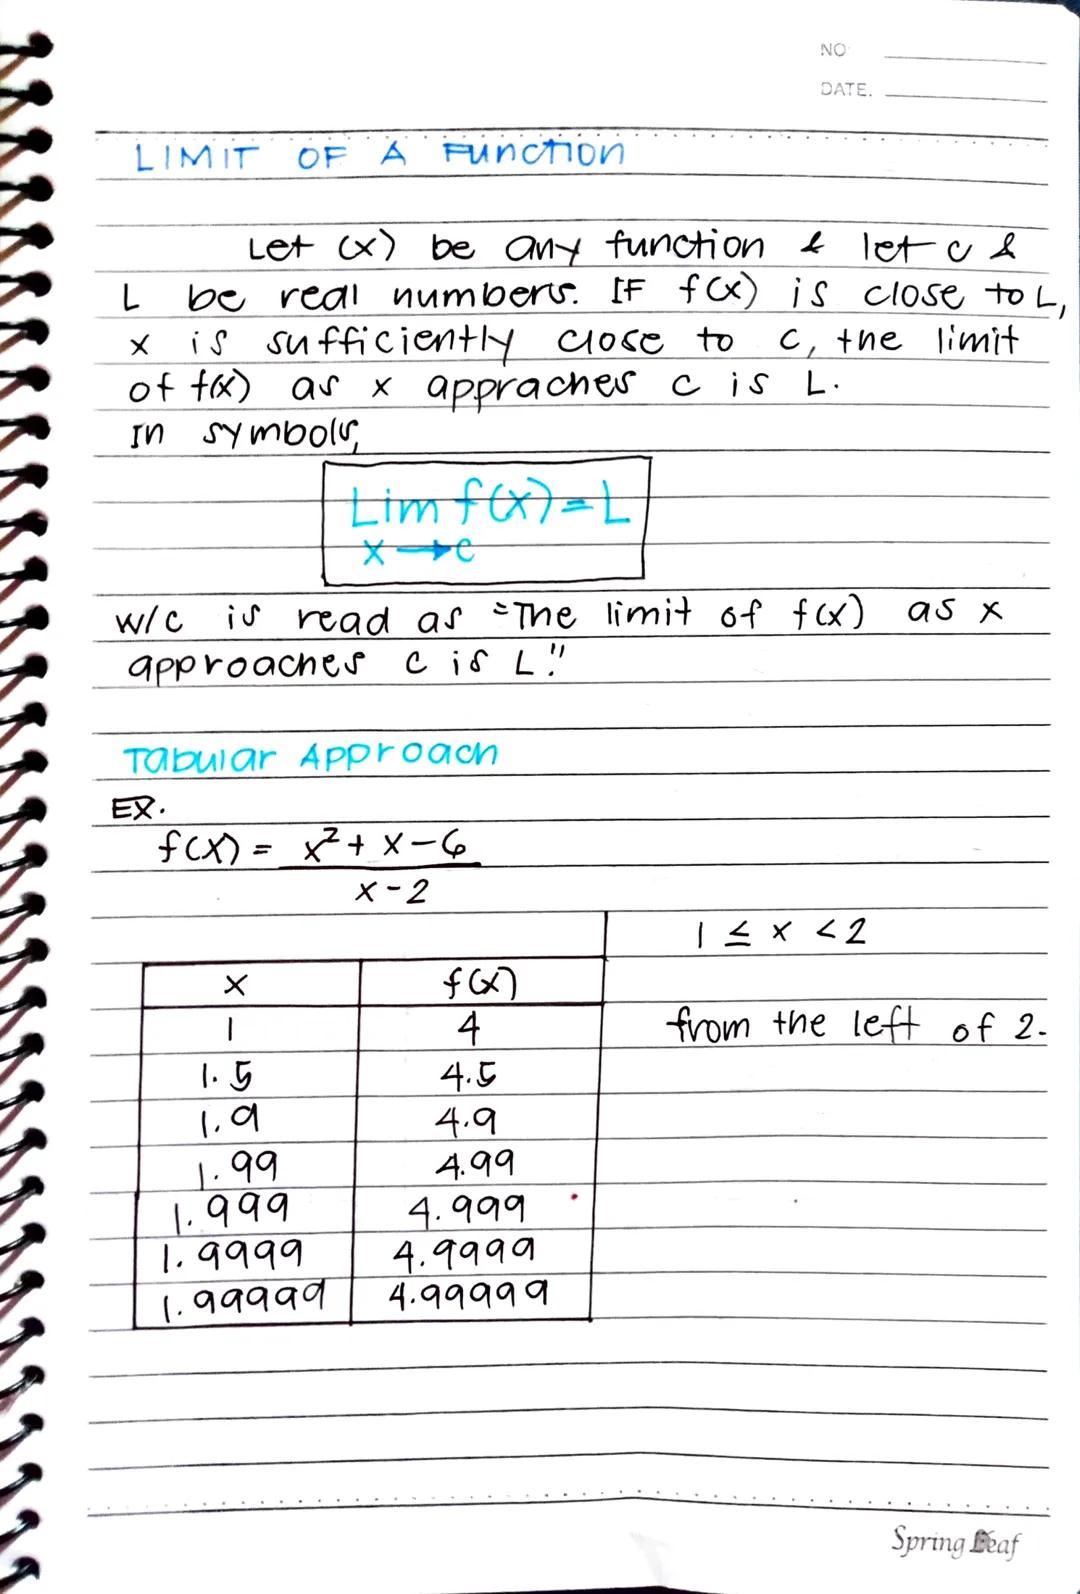 NO
DATE.
LIMIT OF A FUNCTION
Let (x) be any function & let c &
L be real numbers. IF f(x) is close to L,
x is sufficiently close to c, the limit
of f(x) as x appraches c is L.
In symbols,
Lim f(x) = L
x → c
w/c is read as "The limit of f(x) as x
approaches c is L."
Tabular Approach
EX.
f(x) = x² + x - 6
x - 2
1 ≤ x < 2
x f(x)
1 4 from the left of 2.
1.5 4.5
1.9 4.9
1.99 4.99
1.999 4.999
1.9999 4.9999
1.99999 4.99999
Spring Leaf